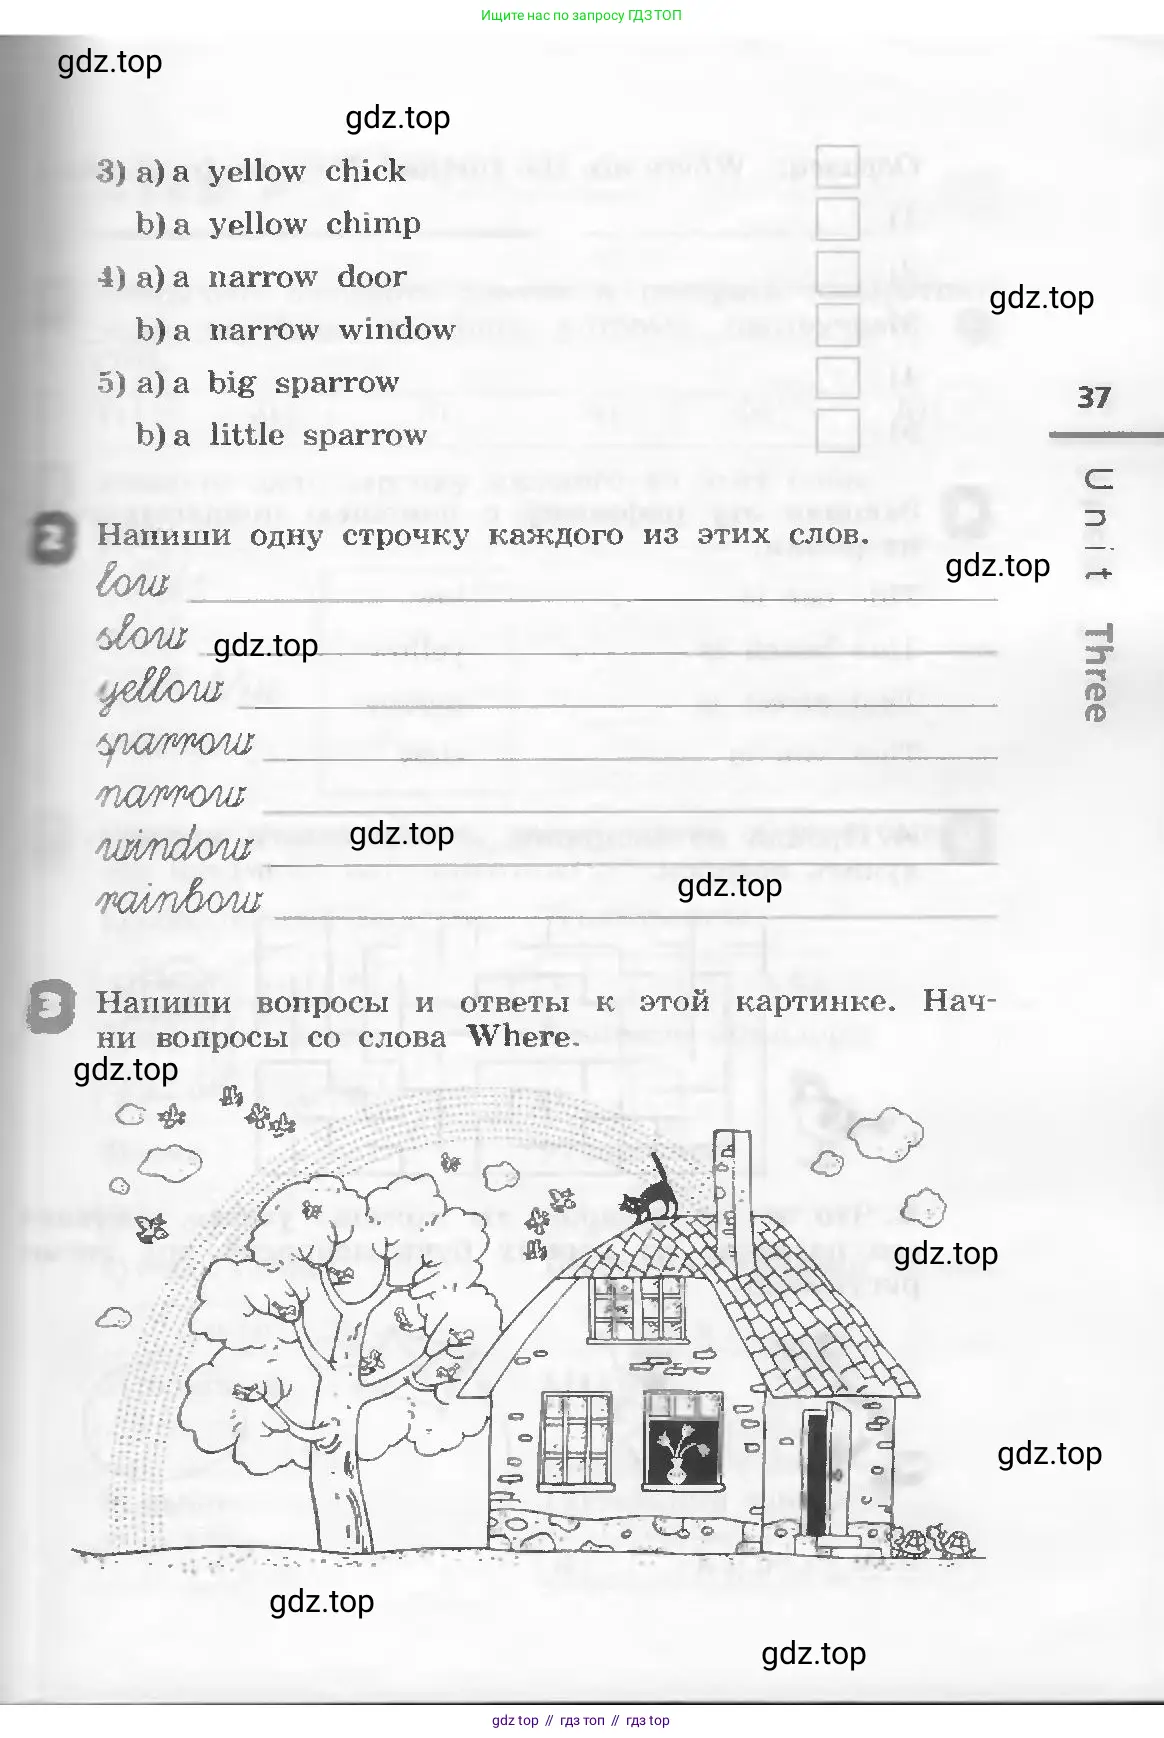 Ищите нас по запросу ГДЗ ТОП
gdz.top
gdz.top
3) a) a yellow chick
b) a yellow chimp
4) a) a narrow door
gdz.top
b) a narrow window
5) a) a big sparrow
37
b) a little sparrow
Unit Three
2 Напиши одну строчку каждого из этих слов.
gdz.top
low
slow
gdz.top
yellow
sparrow
narrow
window
gdz.top
rainbow
gdz.top
3 Напиши вопросы и ответы к этой картинке. Нач-
ни вопросы со слова Where.
gdz.top
gdz.top
gdz.top
gdz.top
gdz.top
gdz top // гдз топ // гдз top